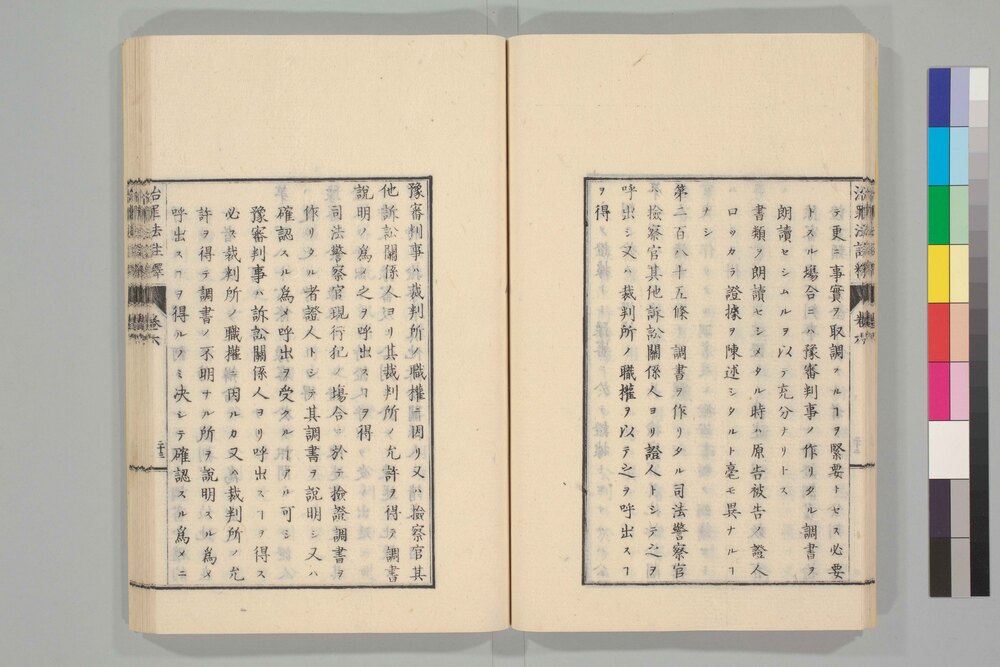 治罪法註釋 卷六
テ更ニ事實ヲ取調フルヿヲ緊要トセス必要
トスル場合ニハ豫審判事ノ作リタル調書ヲ
朗讀セシムルヲ以テ充分ナリトス
書類ヲ朗讀セシメタル時ハ原告被告ノ證人
口ッカラ證據ヲ陳述シタルト毫モ異ナルヿ
ナシ
第二百八十五條 調書ヲ作リタル司法警察官
ハ撿察官其他訴訟關係人ヨリ證人トシテ之ヲ
呼出シ又ハ裁判所ノ職權ヲ以テ之ヲ呼出スヿ
ヲ得
豫審判事ハ裁判所ノ職權ニ因リ又ハ撿察官其
他訴訟關係人ヨリ其裁判所ノ允許ヲ得テ調書
說明ノ爲メ之ヲ呼出スヿヲ得
司法警察官現行犯ノ塲合ニ於テ撿證調書ヲ
作リタル者證人トシテ其調書ヲ說明シ又ハ
確認スル爲メ呼出ヲ受クルヿアル可シ
豫審判事ハ訴訟關係人ヨリ呼出スヿヲ得ス
必ス裁判所ノ職權ニ因ルカ又ハ裁判所ノ允
許ヲ得テ調書ノ不明ナル所ヲ說明スル爲メ
呼出スヿヲ得ルノミ決シテ確認スル爲メニ
治罪法註釋 卷六